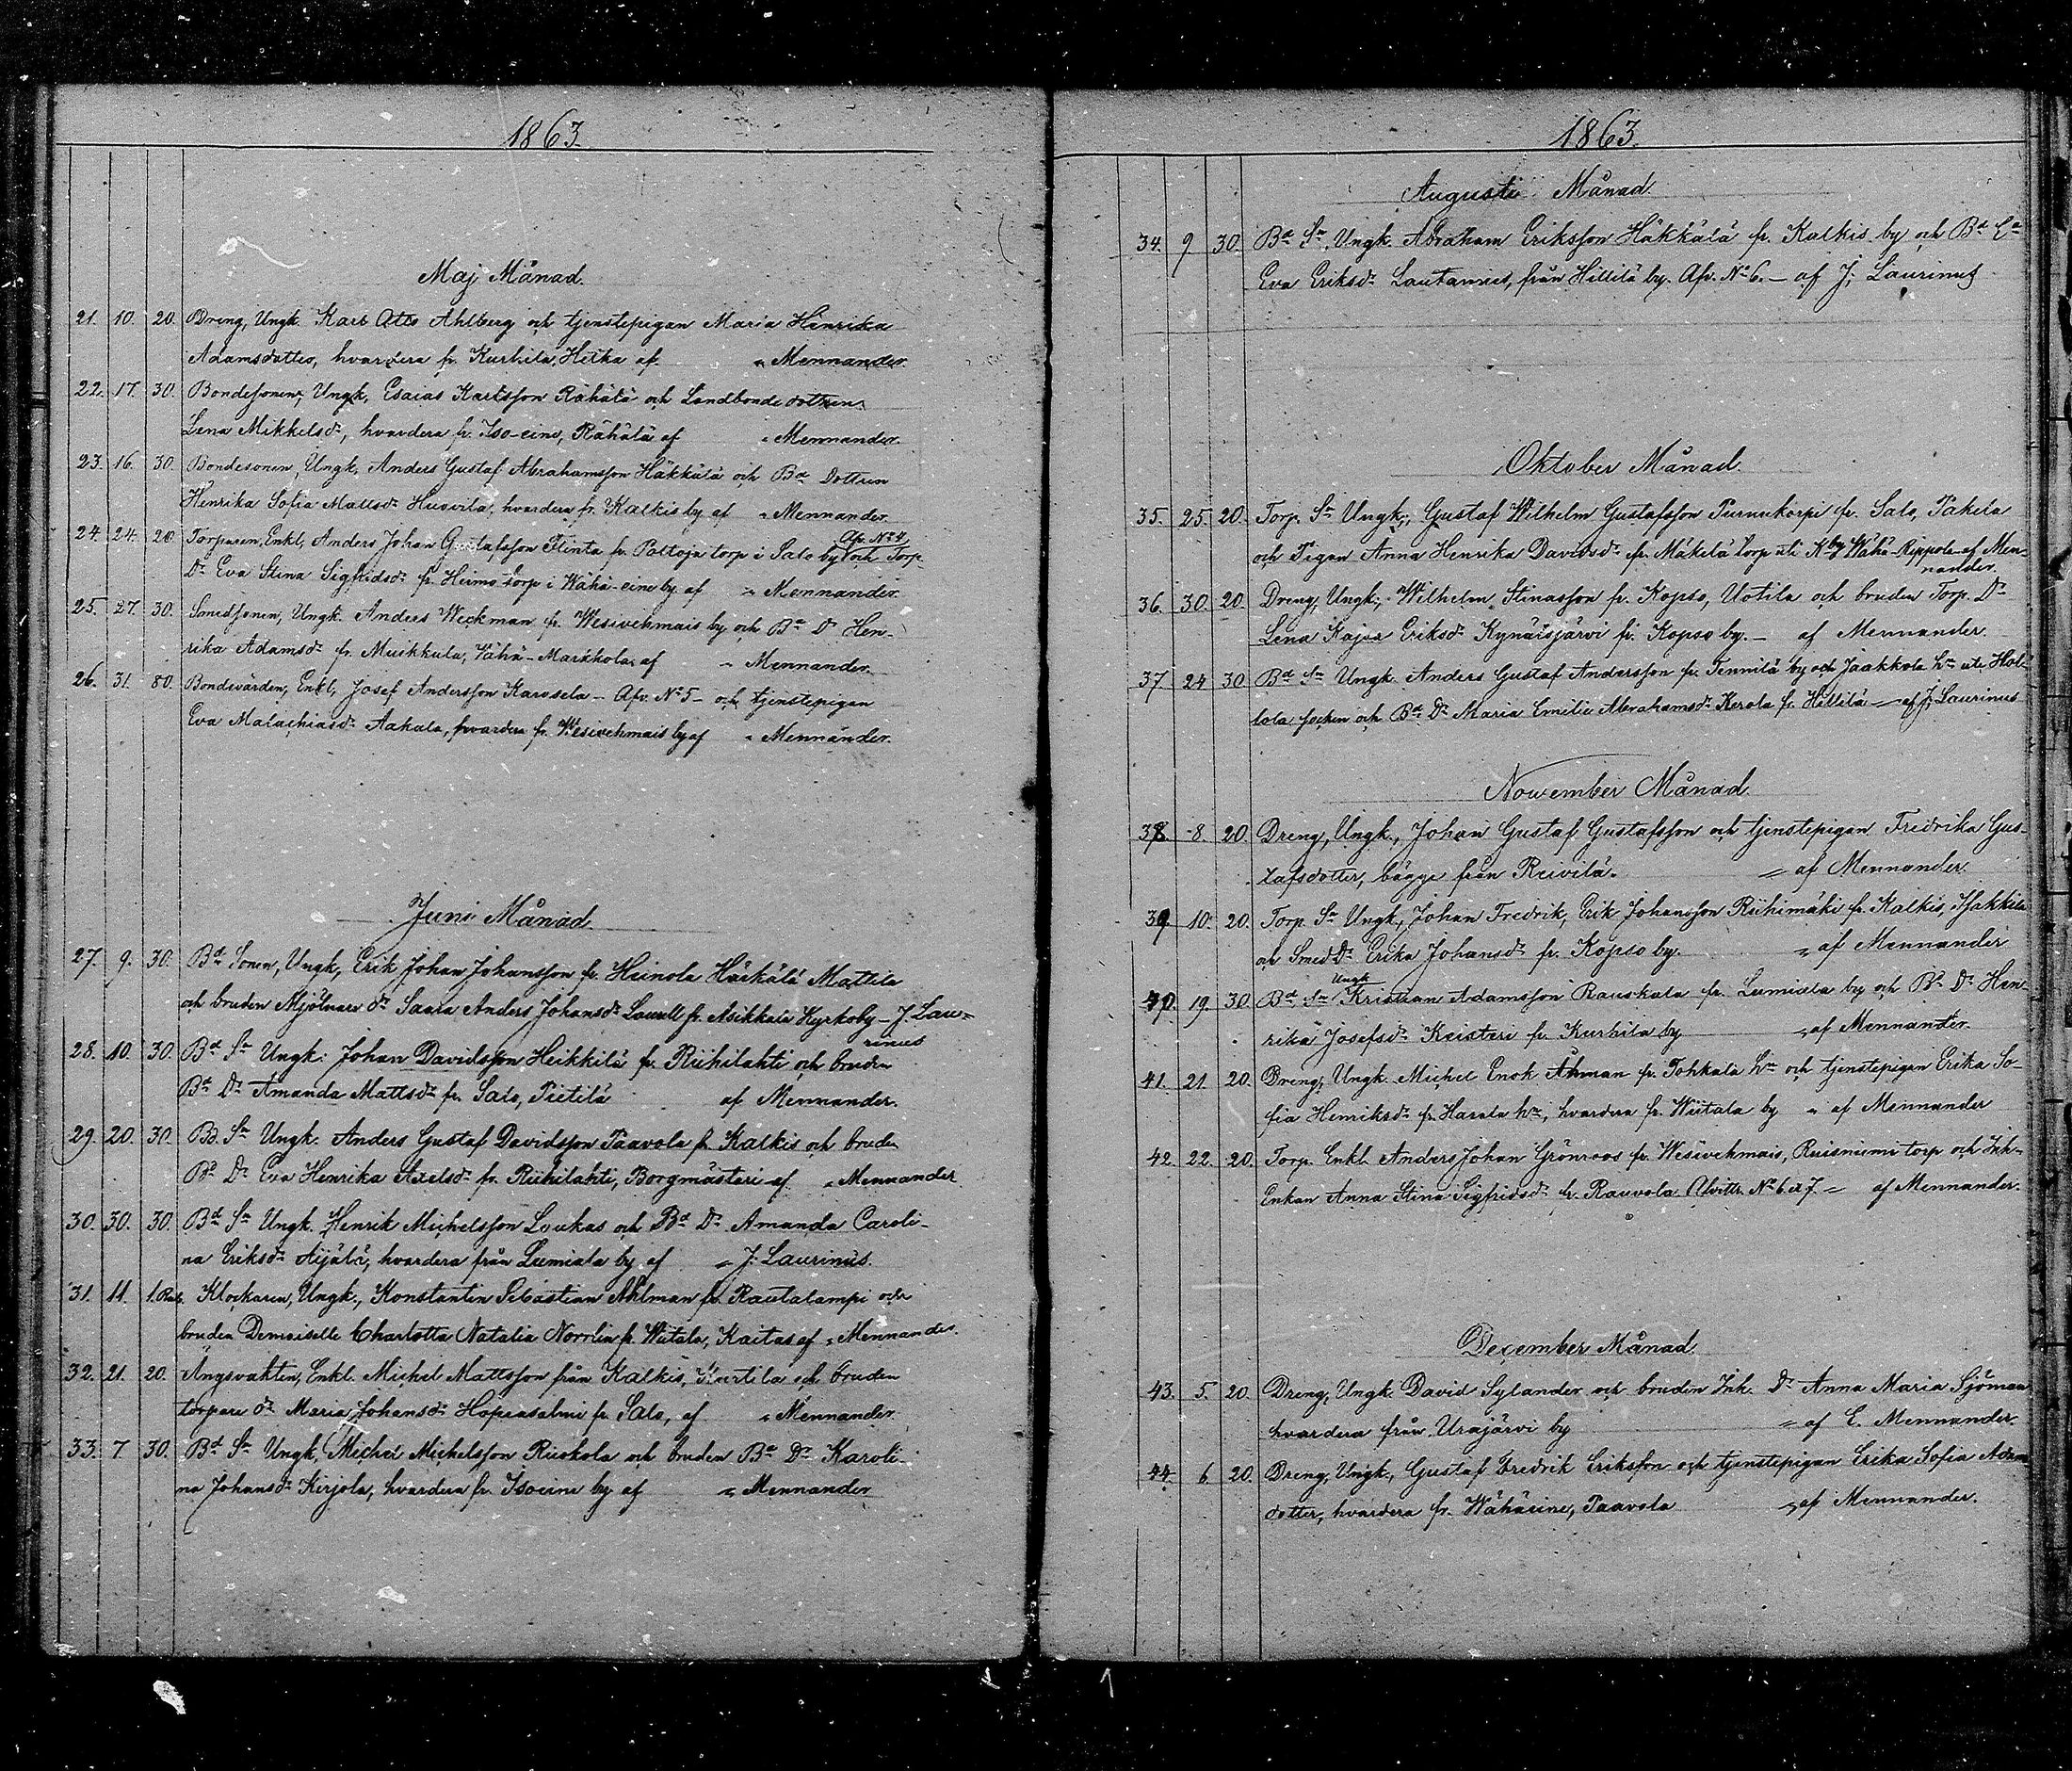 1863.
Maj Månad.
21. 10. 20. Dreng, Ungk. Karl Otto Ahlberg och tjenstepigan Maria Henrika
Adamsdotter, hvardera fr. Kurhila, Heika af „ Mennander.
22. 17. 30. Bondesonen, Ungk, Esaias Karlsson Rähälä och Landbonde dottren
Lena Mikkelsdr, hvardera fr. Iso-eine, Rähälä af „ Mennander.
23. 16. 30. Bondesonen, Ungk, Anders Gustaf Abrahamsson Häkkälä och Bde Dottren
Henrika Sofia Mattsdr Huovila, hvardera fr. Kalkis by af „ Mennander.
24. 24. 20. Torparen, Enkl, Anders Johan Gustafsson Flinta fr. Paltoja torp i Salo by Afv. No 4 och Torp.
Dr Eva Stina Sigfridsdr fr. Heimo torp i Wähä-eine by af „ Mennander.
25. 27. 30. Smedsonen, Ungk. Anders Weckman fr. Wesivehmais by och Bde Dr Hen-
rika Adamsdr fr. Muikkula, Wähä-Markkola, af „ Mennander.
26. 31. 80. Bondevärden, Enkl, Josef Andersson Karosela - Afv. No 5 - och tjenstepigan
Eva Malachiasdr Aakala, hvardera fr. Wesivehmais by af „ Mennander.
Juni Månad.
27. 9. 30. Bde Sonen, Ungk, Erik Johan Johansson fr. Heinola Härkälä Mattila
och bruden Mjölnare dr Saara Anders Johansdr Laurell fr. Asikkala Kyrkoby - J. Lau-
rinus
28. 10. 30. Bde Sn Ungk. Johan Davidsson Heikkilä fr. Riihilahti och bruden
Bde Dr Amanda Mattsdr fr. Salo, Pietilä af Mennander.
29. 20. 30. Bd. Sn Ungk. Anders Gustaf Davidsson Paavola fr. Kalkis och bruden
Bde Dr Eva Henrika Axelsdr fr. Riihilahti, Borgmästeri af „ Mennander
30. 30. 30. Bde Sn Ungk. Henrik Michelsson Loukas och Bde Dr Amanda Caroli-
na Eriksdr Äijälä, hvardera från Lumiala by af „ J. Laurinus.
31. 11. 1. Rub. Klockaren, Ungk., Konstantin Sebastian Ahlman fr. Rautalampi och
bruden Demoiselle Charlotta Natalia Norrlin fr. Wiitala, Kaitas af „ Mennander.
32. 21. 20. Ängsvakten, Enkl. Michel Mattsson från Kalkis, Kurtila och bruden
torpare dr Maria Johansdr Hopiasalmi fr. Salo, af „ Mennander
33. 7 30. Bde Sn Ungk, Michel Michelsson Ruokola och bruden Bde Dr Karoli-
na Johansdr Kirjola, hvardera fr. Isoeine by af „ Mennander
1863.
Augusti Månad.
34. 9 30. Bde Sn, Ungk. Abraham Eriksson Häkkälä fr. Kalkis by och Bde Ea
Eva Eriksdr Lautamies, från Hillilä by. Afv. No 6. - af J; Laurinus
Oktober Månad.
35. 25. 20. Torp. Sn Ungk; Gustaf Wilhelm Gustafsson Purnukorpi fr. Salo, Pakela
och Pigan Anna Henrika Davidsdr fr. Mäkelä torp uti Kby Wähä-Rippola af Men-
nander.
36. 30. 20. Dreng, Ungk; Wilhelm Stinasson fr. Kopso, Uotila och bruden Torp. Dr
Lena Kajsa Eriksdr Kynäisjärvi fr. Kopso by. - af Mennander.
37 24 30 Bde Sn Ungk. Anders Gustaf Andersson fr. Tennilä by och Jaakkola hn uti Hol-
lola socken och Bde Dr Maria Emilie Abrahamsdr Kerola fr. Hillilä - af J; Laurinus
November Månad.
38. 8. 20. Dreng, Ungk., Johan Gustaf Gustafsson och tjenstepigan Fredrika Gus-
tafsdotter, bägge från Reivilä. „ af Mennander.
39. 10. 20. Torp. Sn Ungk, Johan Fredrik, Erik Johansson Riihimäki fr. Kalkis,
och Smed Dr Erika Johansdr fr. Kopso by. „ af Mennander
40. 19. 30. Bde Sn Ungk Kristian Adamsson Rauskala fr. Lumiala by och Bde Dr Hen-
rika Josefsdr Keisteri fr. Kurhila by „ af Mennander.
41. 21 20. Dreng, Ungk. Michel Enok Åhman fr. Tohkala hn och tjenstepigan Erika So-
fia Henriksdr fr. Harala hn, hvardera fr. Wiitala by „ af Mennander
42. 22. 20. Torp. Enkl. Anders Johan Grönroos fr. Wesivehmais, Ruisniemi torp och Inh-
Enkan Anna Stina Sigfridsdr fr. Rauvola. Qvittr. No 6 & 7. „ af Mennander.
December Månad.
43. 5. 20. Dreng, Ungk. David Sylander och bruden Inh. Dr Anna Maria Sjöman
hvardera från Urajärvi by „ af E. Mennander.
44. 6. 20. Dreng, Ungk., Gustaf Fredrik Eriksson och tjenstepigan Erika Sofia Adams
dotter, hvardera fr. Wähäeine, Paavola „ af Mennander.